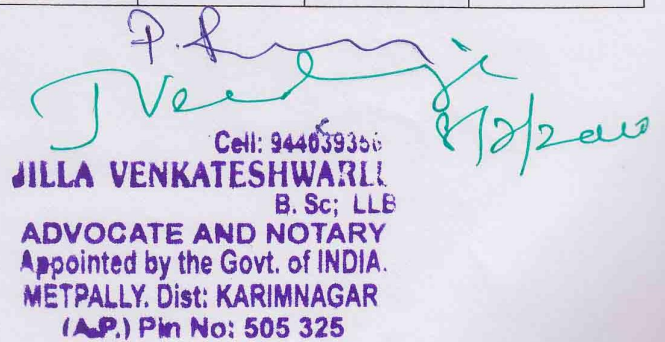 P.
8/2/2010
Cell: 944039356
JILLA VENKATESHWARLU
B. Sc; LLB
ADVOCATE AND NOTARY
Appointed by the Govt. of INDIA.
METPALLY. Dist: KARIMNAGAR
(A.P.) Pin No: 505 325